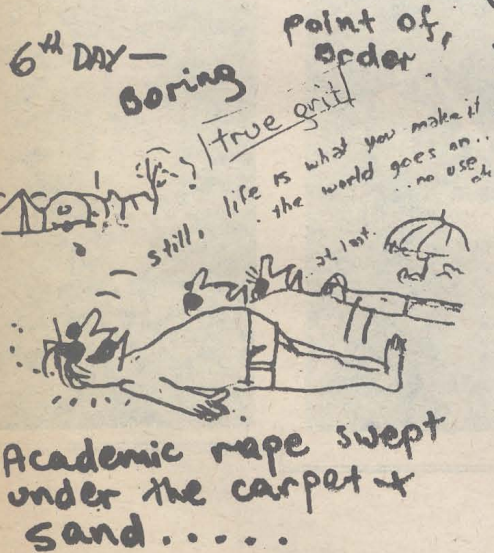 6th DAY —
Boring
point of,
order
true grit
still, life is what you make it
the world goes on..
..no use
at last.
Academic rape swept
under the carpet +
sand.....